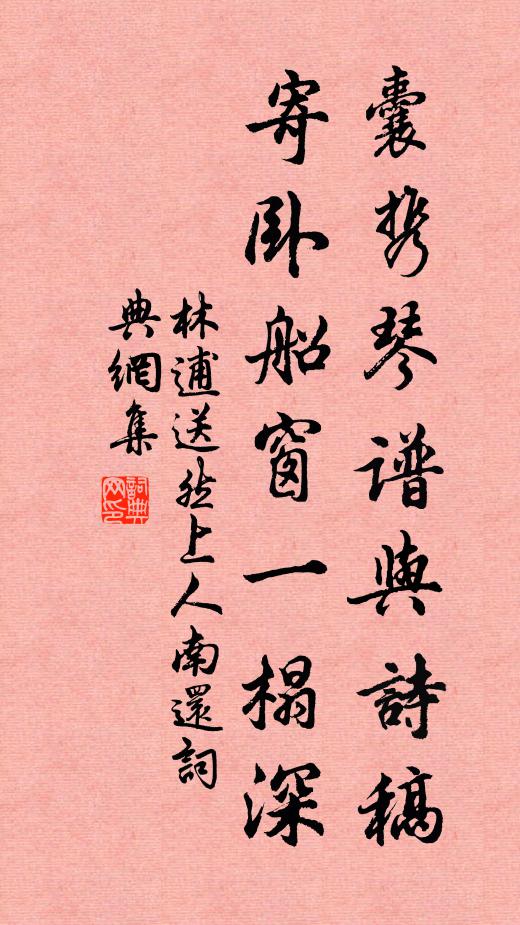 囊携琴譜與詩稿
寄卧船窗一榻深
林逋送然上人南還詞
典網集
詞典網印